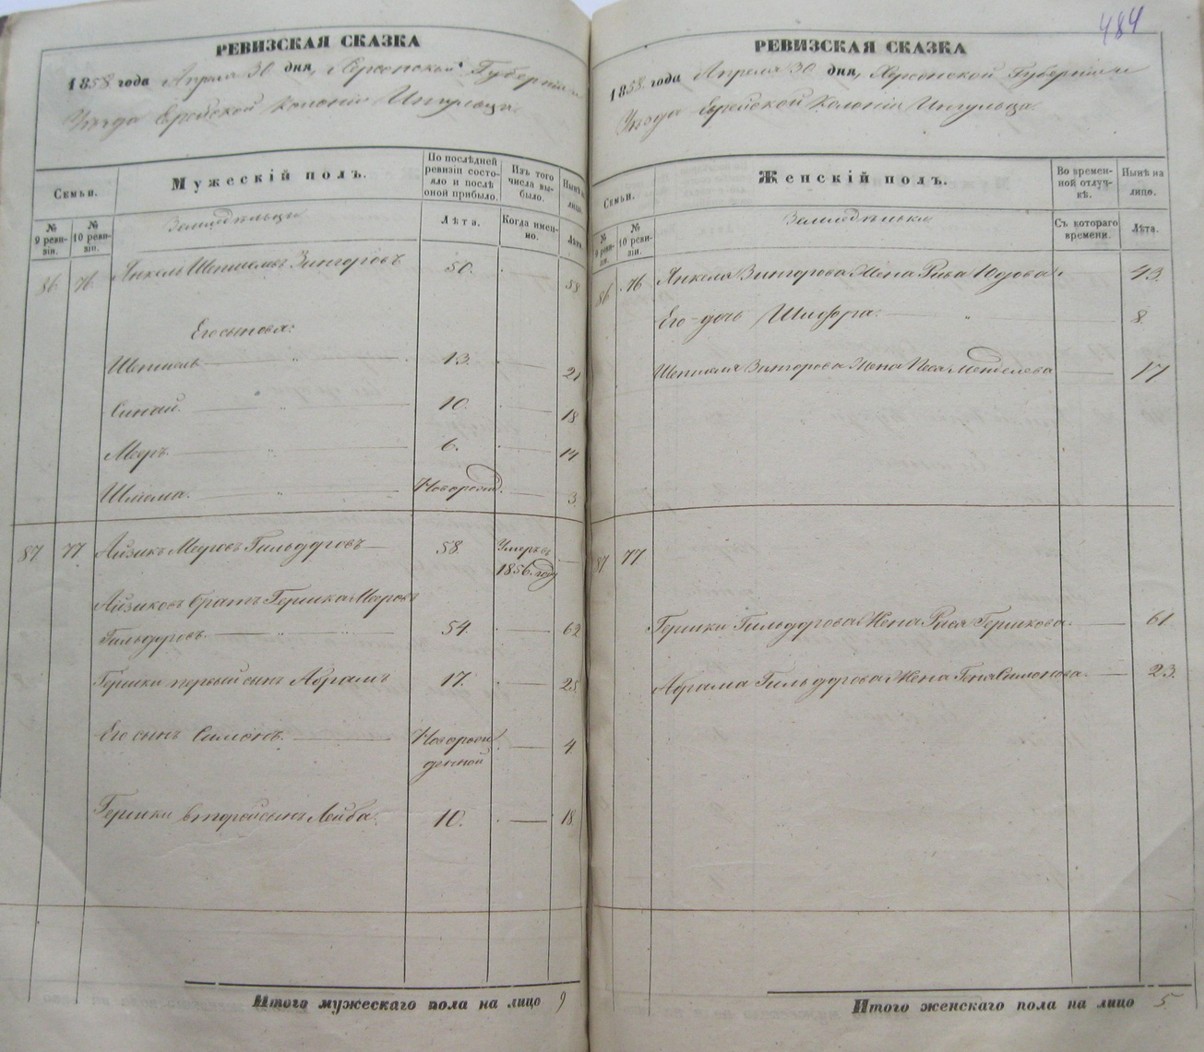 РЕВИЗСКАЯ СКАЗКА
1858 года Апреля 30 дня, Херсонской Губерніи и
Уѣзда Еврейской Колоніи Ингульца.
Семьи.
Мужескій полъ.
По послѣдней ревизіи состояло и послѣ оной прибыло.
Изъ того числа выбыло.
Нынѣ на лицо.
№ 9 ревизіи.
№ 10 ревизіи.
Земледѣльцы
Лѣта.
Когда именно.
Лѣта.
86 76 Янкель Шепшелевъ Зингоровъ 50. 58
Его сыновья:
Шепшель 13. 21
Синай. 10. 18
Меръ. 6. 14
Шлема. Новорожд. 3.
87 77 Айзикъ Меровъ Гильдуровъ 58. Умеръ въ 1856. году
Айзиковъ братъ Гершка Меровъ
Гильдуровъ. 54. 62
Гершки первый сынъ Абрамъ 17. 25
Его сынъ Симонъ. Новорожденной 4
Гершки второй сынъ Лейба. 10. 18
Итого мужескаго пола на лицо 9
484
РЕВИЗСКАЯ СКАЗКА
1858. года Апреля 30 дня, Херсонской Губерніи и
Уѣзда Еврейской Колоніи Ингульца.
Семьи.
Женскій полъ.
Во временной отлучкѣ.
Нынѣ на лицо.
№ 9 ревизіи.
№ 10 ревизіи.
Земледѣльки
Съ котораго времени.
Лѣта.
86 76 Янкеля Зингорова Жена Рива Юдова 43.
Его дочь Шифра. 8.
Шепшеля Зингорова Жена Песа 17
87 77.
Гершки Гильдурова Жена Рися Гершкова. 61.
Абрама Гильдурова Жена Геня Симонова. 23.
Итого женскаго пола на лицо 5